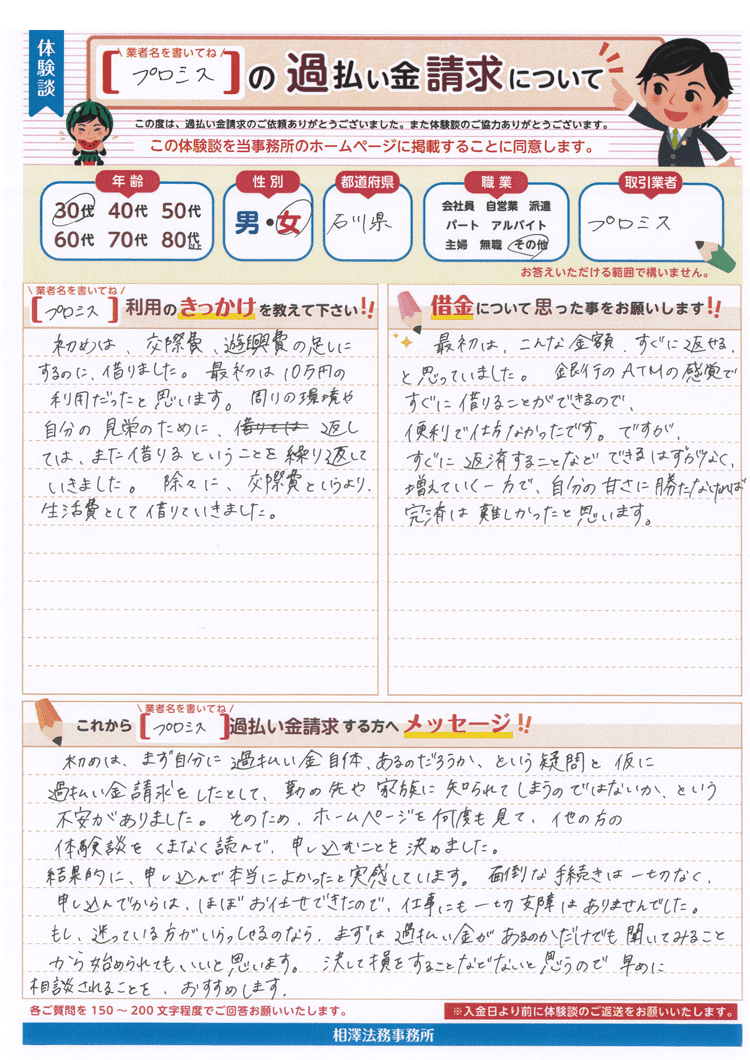 体験談
業者名を書いてね
[プロミス]の過払い金請求について
この度は、過払い金請求のご依頼ありがとうございました。また体験談のご協力ありがとうございます。
この体験談を当事務所のホームページに掲載することに同意します。
年齢
30代 40代 50代
60代 70代 80代以上
性別
男・女
都道府県
石川県
職業
会社員 自営業 派遣
パート アルバイト
主婦 無職 その他
取引業者
プロミス
お答えいただける範囲で構いません。
業者名を書いてね
[プロミス]利用のきっかけを教えて下さい!!
初めは、交際費、遊興費の足しに
するのに、借りました。最初は10万円の
利用だったと思います。周りの環境や
自分の見栄のために、借りては 返し
ては、また借りるということを繰り返して
いきました。除々に、交際費というより、
生活費として借りていきました。
借金について思った事をお願いします!!
最初は、こんな金額、すぐに返せる、
と思っていました。銀行のATMの感覚で
すぐに借りることができるので、
便利で仕方なかったです。ですが、
すぐに返済することなどできるはずがなく、
増えていく一方で、自分の甘さに勝たなければ
完済は難しかったと思います。
業者名を書いてね
これから[プロミス]過払い金請求する方へメッセージ!!
初めは、まず自分に過払い金自体、あるのだろうか、という疑問と仮に
過払い金請求をしたとして、勤め先や家族に知られてしまうのではないか、という
不安がありました。そのため、ホームページを何度も見て、他の方の
体験談をくまなく読んで、申し込むことを決めました。
結果的に、申し込んで本当によかったと実感しています。面倒な手続きは一切なく、
申し込んでからは、ほぼお任せできたので、仕事にも一切支障はありませんでした。
もし、迷っている方がいらっしゃるのなら、まずは過払い金があるのかだけでも聞いてみること
から始められてもいいと思います。決して損をすることなどないと思うので早めに
相談されることを、おすすめします。
各ご質問を150～200文字程度でご回答お願いいたします。
※入金日より前に体験談のご返送をお願いいたします。
相澤法務事務所